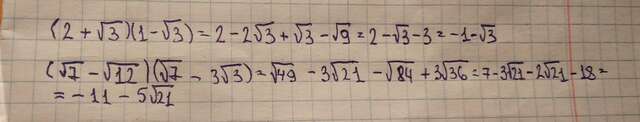 (2 + √3)(1 - √3) = 2 - 2√3 + √3 - √9 = 2 - √3 - 3 = -1 - √3
(√7 - √12)(√7 - 3√3) = √49 - 3√21 - √84 + 3√36 = 7 - 3√21 - 2√21 - 18 =
= -11 - 5√21